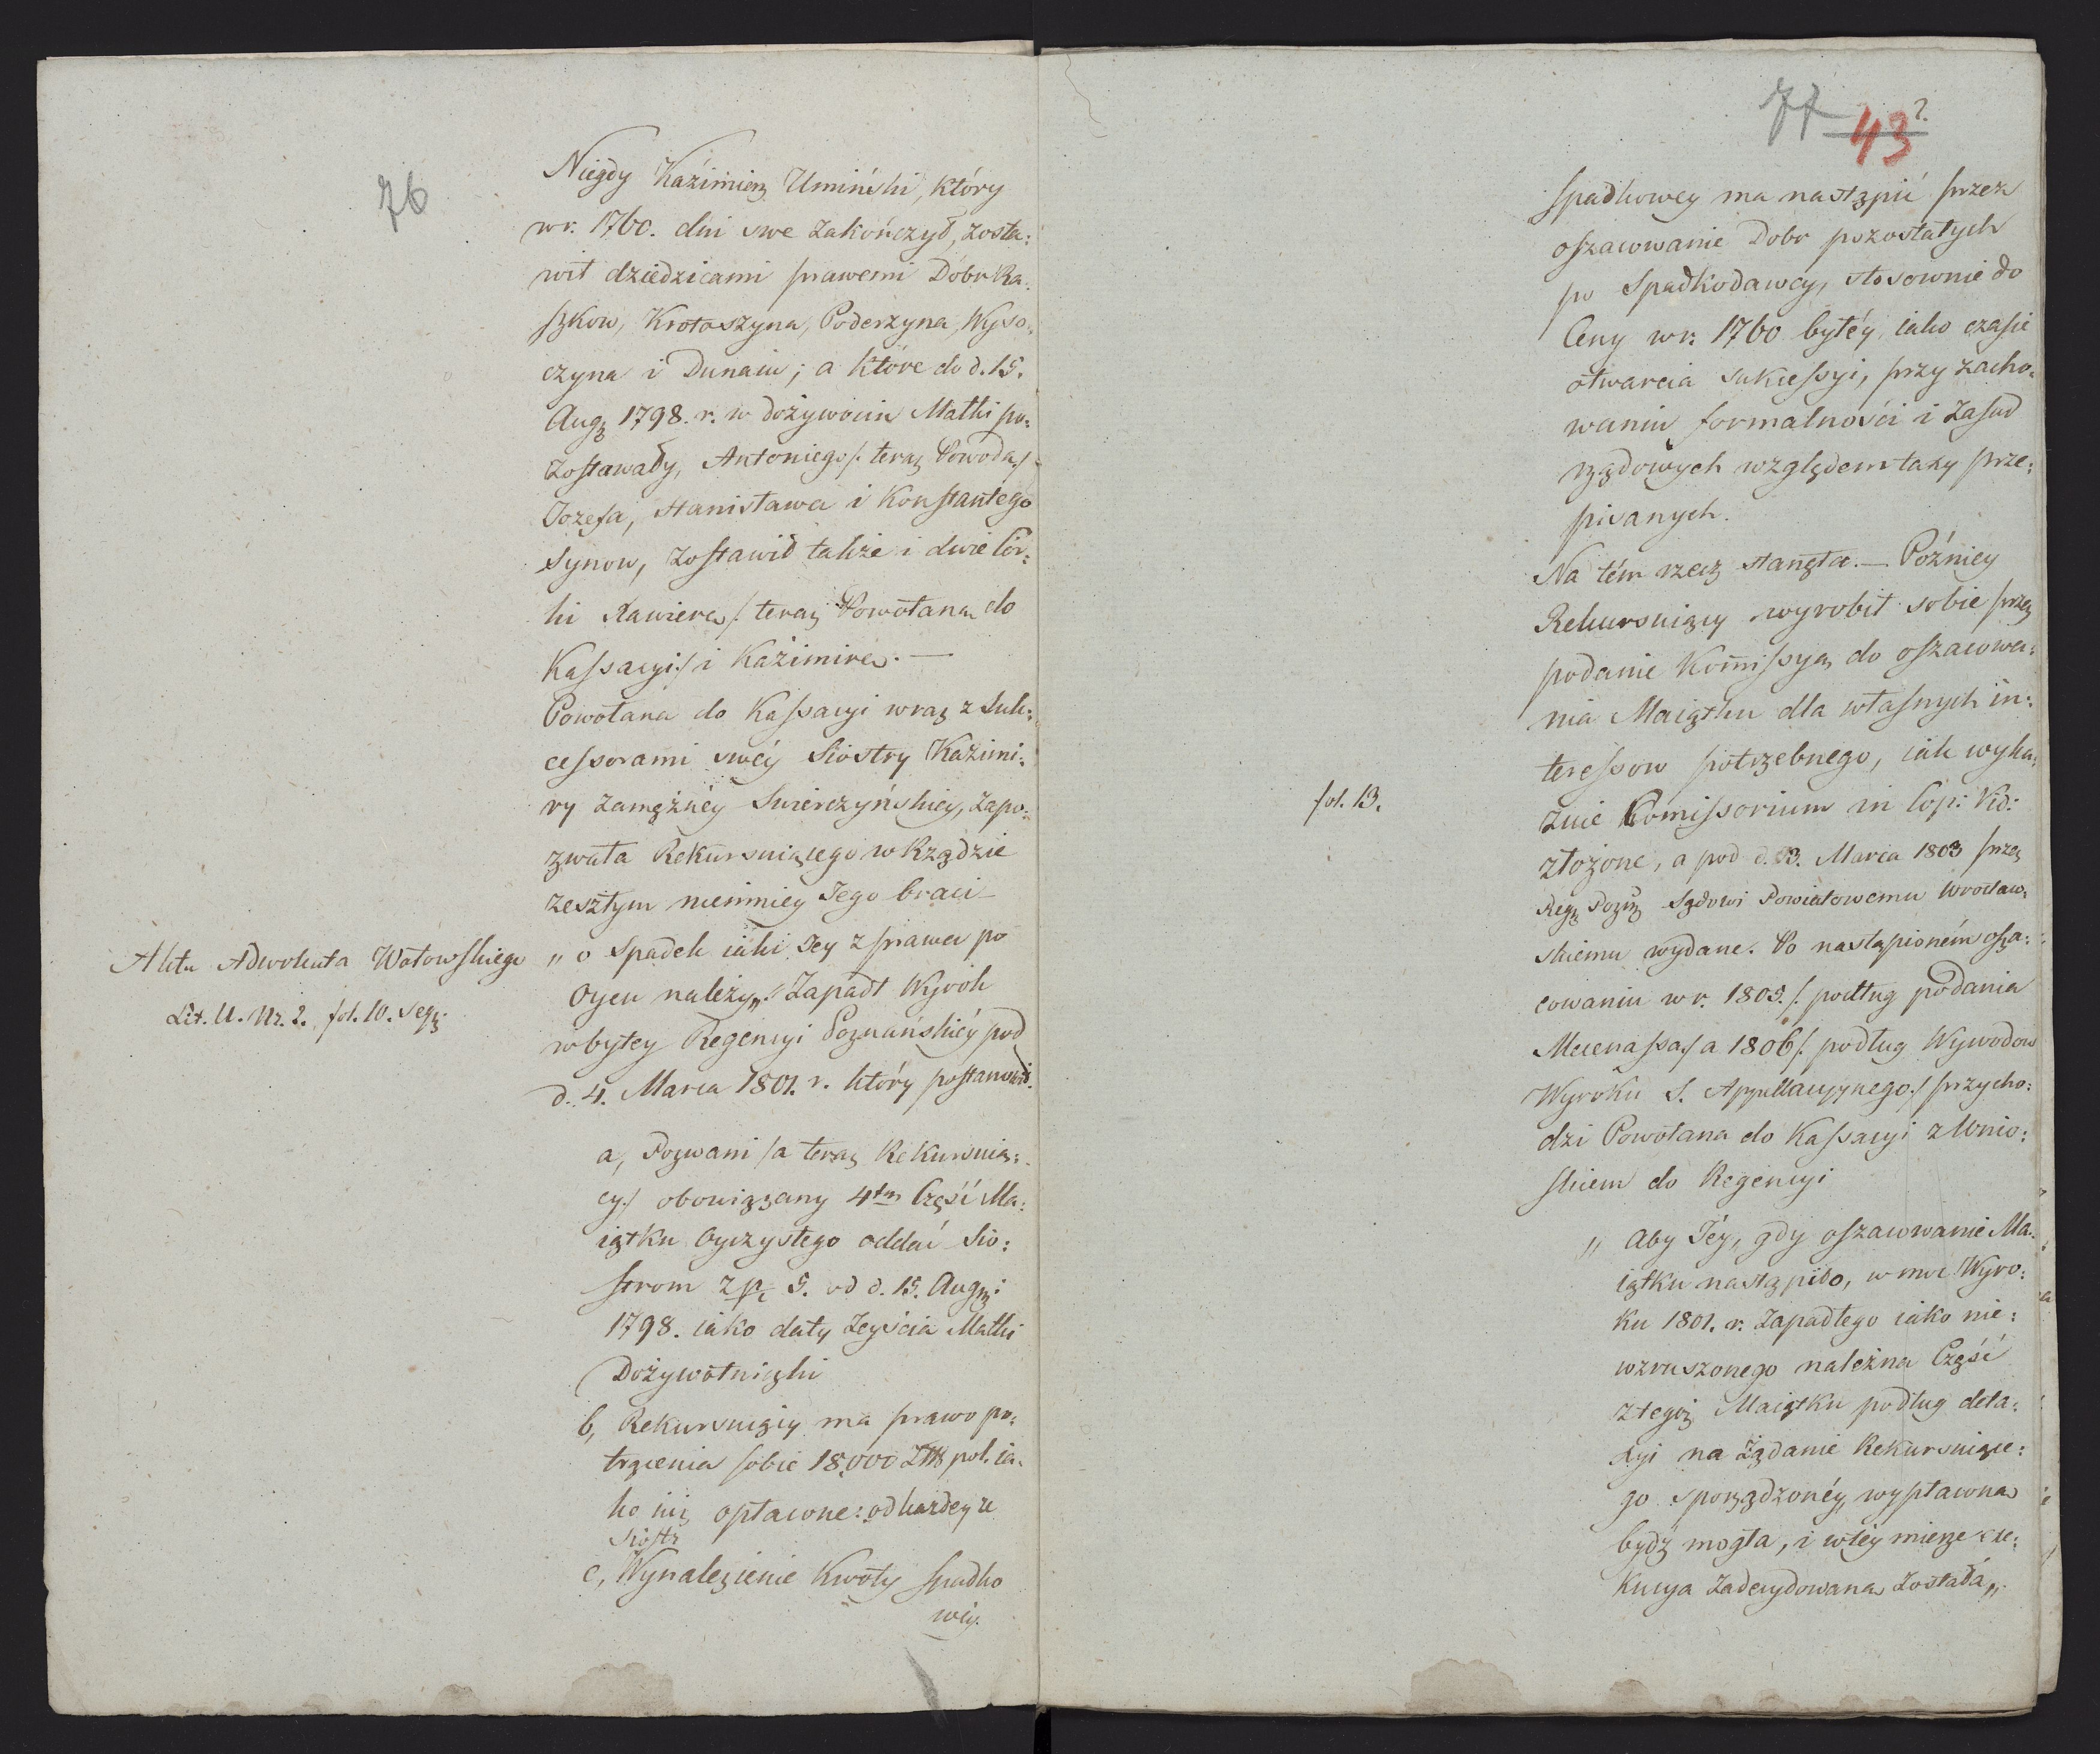 76
Niegdy Kaźimierz Umiński, który
w r. 1760. dni swe zakończył, zosta:
wił dziedzicami prawemi Dóbr Ra:
szkow, Krotoszyna, Poderzyna, Wyso:
czyna i Dunaiu; a które do d. 15.
Aug 1798. r. w dożywociu Matki po:
zostawały, Antoniego /: teraz Powoda :/
Jozefa, Stanisława i Konstantego
Synow, zostawił także i dwie Cór:
ki Xawierą /: teraz Powołaną do
Kassacyi :/ i Kaźimirę. —
Powołana do Kassacyi wraz z Suk:
cessorami swéy Siostry Kaźimi:
ry zamężnéy Swierczyńskiey, zapo:
zwała Rekursuiącego w Rządzie
zeszłym niemniey Jego braci —
„ o Spadek iaki Jey z prawa po
Oycu należy „ Zapadł Wyrok
w byłey Regencyi Poznańskiéy pod
d. 4. Marca 1801. r. który postanowił.
Aktu Adwokata Wołowskiego
Lit. U. Nr. 2. fol. 10. seq.
a, Pozwani /: a teraz Rekursuią:
cy :/ obowiązany 4tą Część Ma:
iątku Oyczystego oddać Sio:
strom z pr. 5. od d. 15. Aug:
1798. iako daty Zeyścia Matki
Dożywotniczki
b, Rekursuiący ma prawo po:
trącenia sobie 18,000 Zł pol. ia:
ko iuż opłacone: od każdey ze
Siostr
c, Wynalezienie Kwoty Spadko
wéy.
77 43 2.
Spadkowey ma nastąpić przez
oszacowanie Dobr pozostałych
po Spadkodawcy, stosownie do
Ceny w r: 1760 byłéy, iako czasie
otwarcia sukcessyi, przy zacho:
waniu formalności i Zasad
rządowych względem taxy prze:
pisanych.
Na tém rzecz stanęła. — Poźniey
Rekursuiący wyrobił sobie przez
podanie Kom̄issyą do oszacowa:
nia Maiątku dla własnych in:
teressow potrzebnego, iak wyka:
zuie Kom̄issorium in Cop: Vid:
fol. 13.
złożone, a pod d. 13. Marca 1803 przez
Reg. Pozn. Sądowi Powiatowemu Wrocław:
skiemu wydane. Po nastąpioném osza:
cowaniu w r. 1805. /: podług podania
Mecenassa :/ a 1806 /: podług Wywodow
Wyroku S. Appellacyynego :/ przycho:
dzi Powołana do Kassacyi z Wnio:
skiem do Regencyi
„ Aby Jéy, gdy oszacowanie Ma:
iątku nastąpiło, w moc Wyro:
ku 1801. r. zapadłego iako nie:
wzruszonego należna Część
z tegoż Maiątku podług deta:
xyi na Żądanie Rekursuiące:
go sporządzonéy wypłacona
bydź mogła, i w téy mierze exe:
kucya zadecydowana została „.